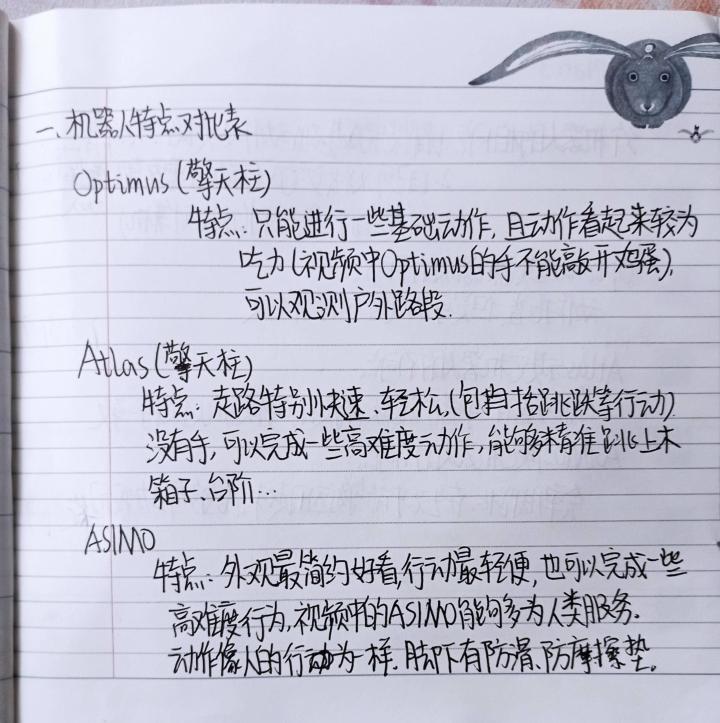 一、机器人特点对比表
Optimus(擎天柱)
特点:只能进行一些基础动作,且动作看起来较为
吃力(视频中Optimus的手不能敲开鸡蛋),
可以观测户外路段.
Atlas(擎天柱)
特点:走路特别快速、轻松,(包括跳跃等行动)
没有手,可以完成一些高难度动作,能够精准跳上木
箱子、台阶…
ASIMO
特点:外观最简约好看,行动最轻便,也可以完成一些
高难度行为,视频中的ASIMO能够多为人类服务.
动作像人的行为一样.脚下有防滑、防摩擦垫。